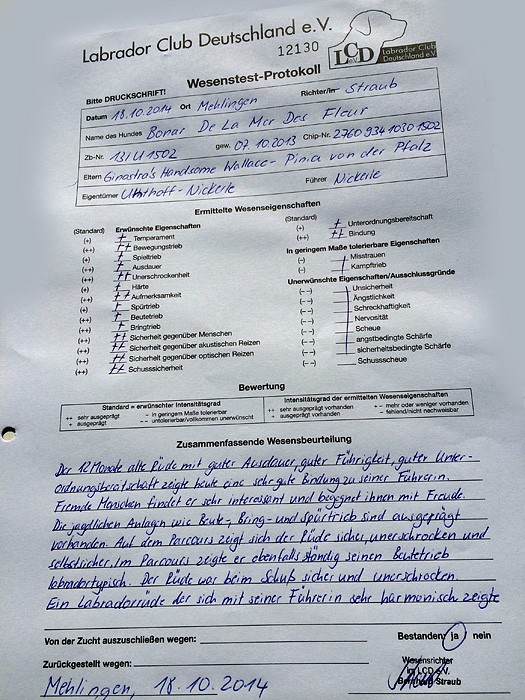 Labrador Club Deutschland e.V.
12130
LCD e.V. Labrador Club Deutschland e.V.
Wesenstest-Protokoll
Bitte DRUCKSCHRIFT!
Datum 18.10.2014 Ort Mehlingen Richter/in Straub
Name des Hundes Bonar De La Mer Des Fleur
Zb-Nr. 131U1502 gew. 07.10.2013 Chip-Nr. 276093410301502
Eltern Ginastra's Handsome Wallace - Pinia von der Pfalz
Eigentümer Uhthoff-Nickerle Führer Nickerle
Ermittelte Wesenseigenschaften
(Standard) Erwünschte Eigenschaften
(+) + Temperament
(++) ++ Bewegungstrieb
(+) + Spieltrieb
(++) Ausdauer
(++) ++ Unerschrockenheit
(+) + Härte
(++) ++ Aufmerksamkeit
(+) + Spürtrieb
(++) Beutetrieb
(++) Bringtrieb
(++) ++ Sicherheit gegenüber Menschen
(++) ++ Sicherheit gegenüber akustischen Reizen
(++) ++ Sicherheit gegenüber optischen Reizen
(++) ++ Schusssicherheit
(Standard)
(+) + Unterordnungsbereitschaft
(++) ++ Bindung
In geringem Maße tolerierbare Eigenschaften
(-) Misstrauen
(-) Kampftrieb
Unerwünschte Eigenschaften/Ausschlussgründe
(--) Unsicherheit
(--) Ängstlichkeit
(--) Schreckhaftigkeit
(--) Nervosität
(--) Scheue
(--) angstbedingte Schärfe
(--) sicherheitsbedingte Schärfe
(--) Schussscheue
Bewertung
Standard = erwünschter Intensitätsgrad
++ sehr ausgeprägt - in geringem Maße tolerierbar
+ ausgeprägt -- untolerierbar/vollkommen unerwünscht
Intensitätsgrad der ermittelten Wesenseigenschaften
++ sehr ausgeprägt vorhanden +- mehr oder weniger vorhanden
+ ausgeprägt vorhanden - fehlend/nicht nachweisbar
Zusammenfassende Wesensbeurteilung
Der 12 Monate alte Rüde mit guter Ausdauer, guter Führigkeit, guter Unter-
ordnungsbereitschaft zeigte heute eine sehr gute Bindung zu seiner Führerin.
Fremde Menschen findet er sehr interessant und begegnet ihnen mit Freude.
Die jagdlichen Anlagen wie Beute-, Bring- und Spürtrieb sind ausgeprägt
vorhanden. Auf dem Parcours zeigt sich der Rüde sicher, unerschrocken und
selbstsicher. Im Parcours zeigte er ebenfalls ständig seinen Beutetrieb
labradortypisch. Der Rüde war beim Schuß sicher und unerschrocken.
Ein Labradorrüde der sich mit seiner Führerin sehr harmonisch zeigte
Von der Zucht auszuschließen wegen: Bestanden: ja nein
Zurückgestellt wegen:
Wesensrichter
im LCD e.V.
Straub
Mehlingen, 18.10.2014